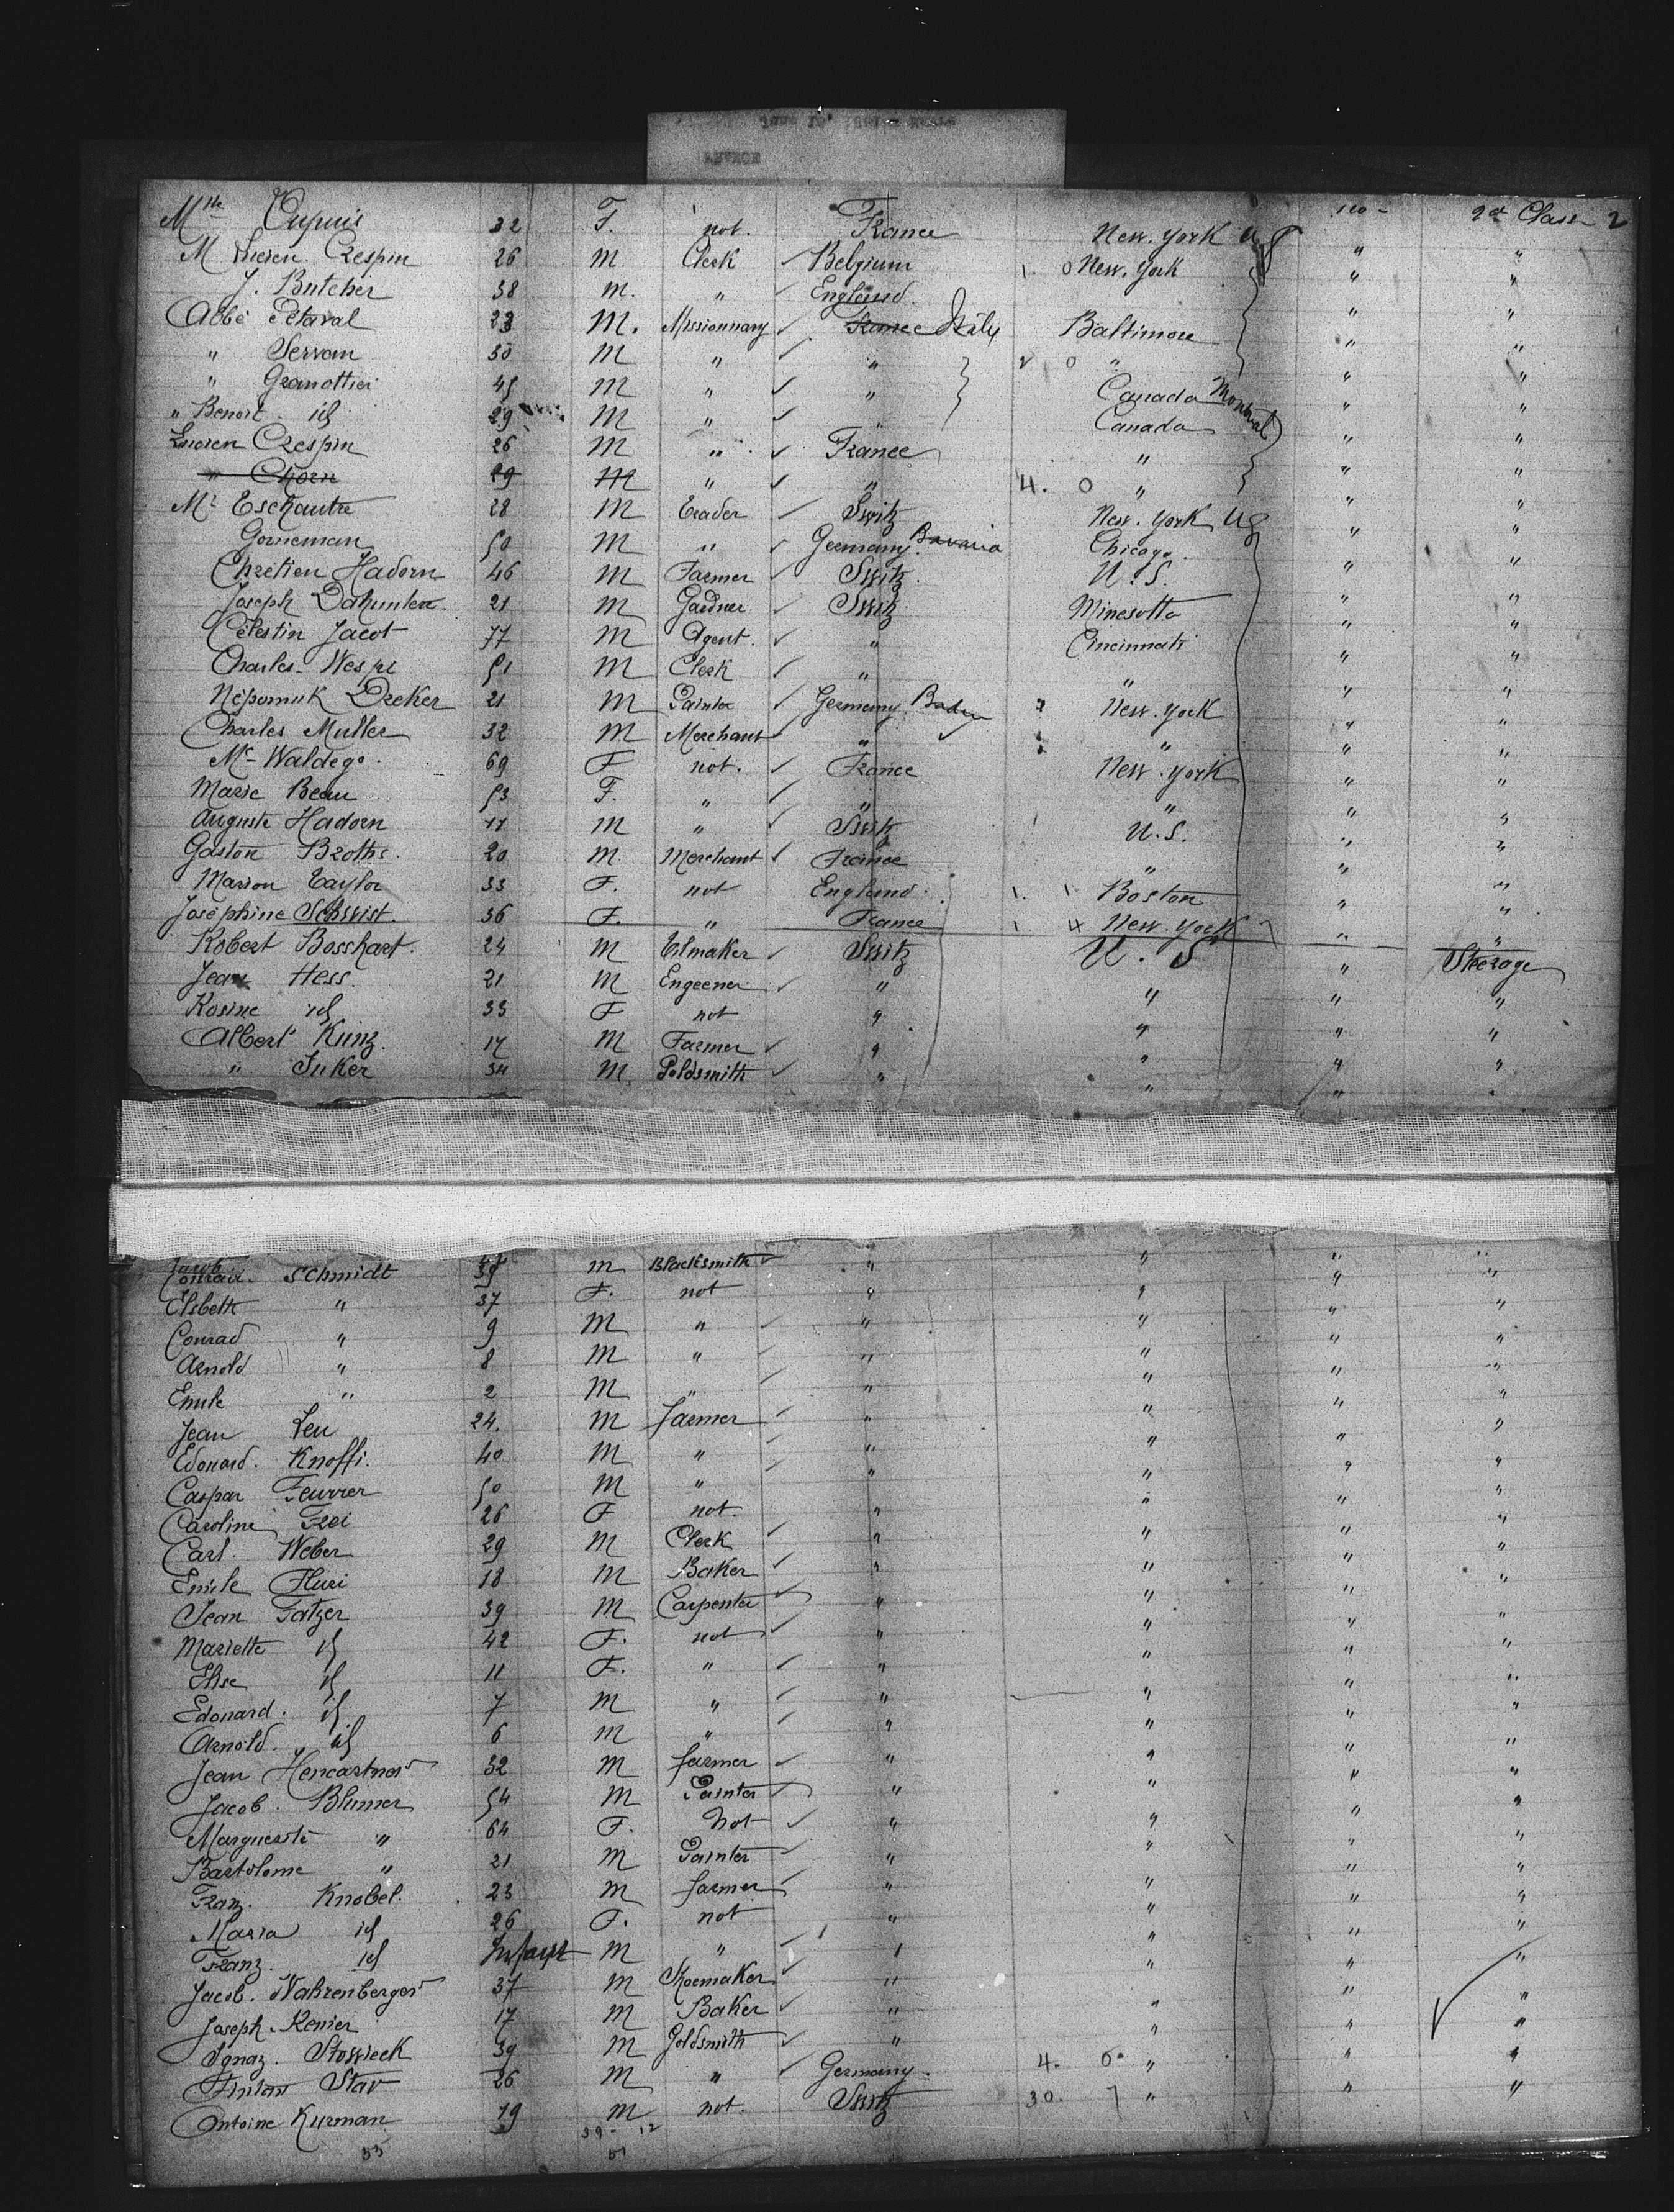 Mlle Dupuis 32 F. not. France New. York U.S no - 2d Class 2
M Lucien Crespin 26 M Clerk Belgium 1. 0 New. York " "
J. Butcher 38 M. " England " "
Abbé Petaval 23 M. Missionnary France Italy Baltimore " "
" Servan 30 M " " 2 0 " " "
" Granottier 45 M " " Canada Montreal " "
" Benoit id 29 M " " Canada " "
Lucien Crespin 26 M " France " " "
" Choen 29 M " " 4. 0 " " "
Mr Eschautre 28 M Trader Switz New. York US " "
Gorneman 50 M " Germany. Bavaria Chicago. " "
Chretien Hadorn 46 M Farmer Switz. U.S. " "
Joseph 21 M Gardner Switz. Minesotto " "
Célestin Jacot 77 M Agent. " Cincinnati " "
Charles Wespi 51 M Clerk " " " "
Népomuk Dreker 21 M Painter Germany Baden New. York " "
Charles Muller 32 M Merchant " " " "
Me Waldego. 69 F not. France New. York " "
Marie Beau 53 F. " " " " "
Auguste Hadorn 11 M " Switz U.S. " "
Gaston Broths. 20 M. Merchant France " " "
Marion Taylor 33 F. not England. 1. 1. Boston " "
Joséphine Schwist. 36 F. " France 1 4 New. York " "
Robert Bosshart. 24 M Tilmaker Switz U. S " Steerage
Jean Hess. 21 M Engeener " " " "
Rosine id 33 F not " " " "
Albert Kunz. 17 M Farmer " " " "
" Suker 34 M. Goldsmith " " " "
Jacob
Conrad. Schmidt 39 M Blacksmith " " " "
Elsbeth " 37 F. not " " " "
Conrad " 9 M " " " " "
Arnold " 8 M " " " " "
Emile " 2 M " " " " "
Jean Leu 24. M farmer " " " "
Edouard. Knoffi. 40 M " " " " "
Caspar Feurrer 50 M " " " " "
Caroline Frei 26 F not. " " " "
Carl. Weber 29 M Clerk " " " "
Emile Fluri 18 M Baker " " " "
Jean Tatzer 39 M Carpenter " " " "
Mariette id 42 F. not " " " "
Elise id 11 F. " " " " "
Edouard. id 7 M " " " " "
Arnold. id 6 M " " " " "
Jean Hencartner 32 M farmer " " " "
Jacob. Blumer 54 M Painter " " " "
Marguerite " 64 F. Not " " " "
Bartolome " 21 M Painter " " " "
Franz. Knobel. 23 M farmer " " " "
Maria id 26 F. not " " " "
Franz. id Infant M " " " " "
Jacob. Wahrenberger 37 M Shoemaker " " " "
Joseph. Renier 17 M Baker " " " "
Ignaz. Stowieck 39 M Goldsmith " " " "
Stav 26 M " Germany. 4. 0. " " "
Antoine Kurman 19 M not. Switz 30. 7 " " "
53 39 - 12
51